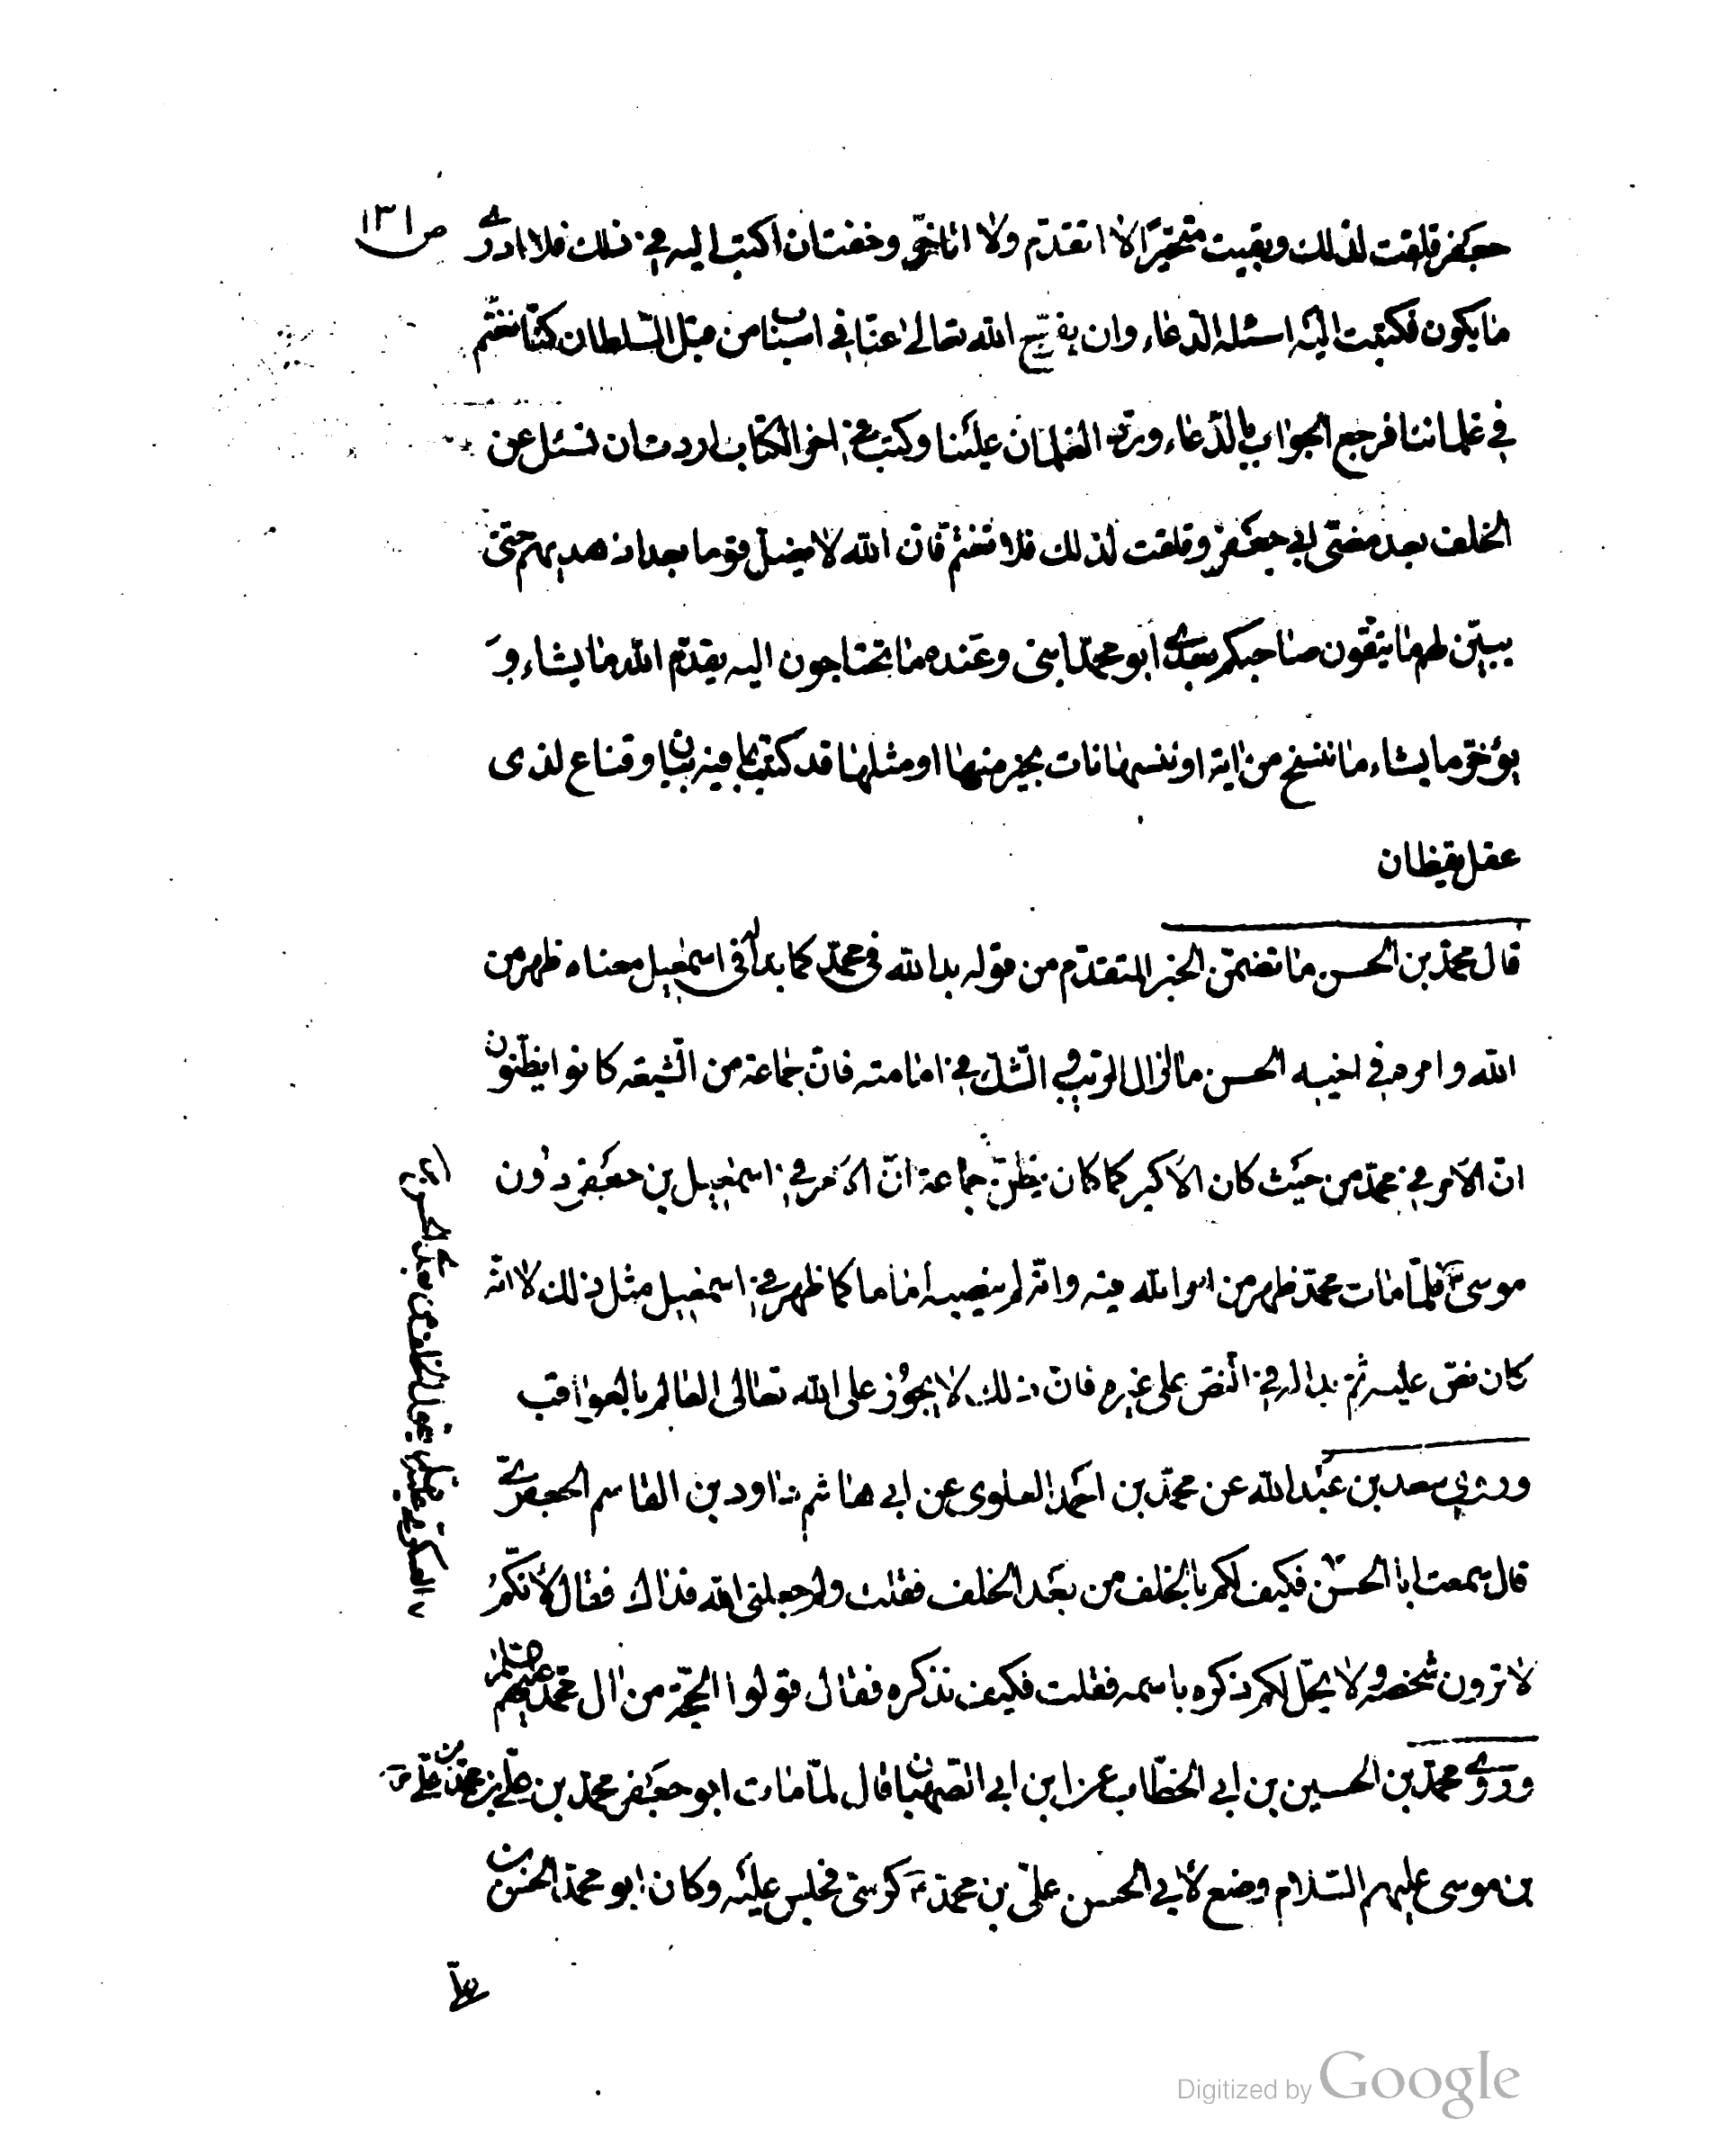 ص ١٣١
جعفر فقلقت لذلك وبقيت متحيّرا لا اتقدّم ولا اتاخّر وخفت ان اكتب اليه في ذلك فلا ادرى
ما يكون فكتبت اليه اسئله الدعاء وان يفرّج الله تعالى عنّا في اسباب من قبل السّلطان كنّا نغتمّ
في غلماننا فرجع الجواب بالدّعاء وردّ الغلمان علينا وكتب في اخر الكتاب اردت ان تسئل عن
الخلف بعد مضىّ ابي جعفر وقلقت لذلك فلا تغتمّ فان الله لا يضلّ قوما بعد اذ هديهم حتى
يبيّن لهم ما يتّقون صاحبكم بعدى ابو محمّد ابني وعنده ما تحتاجون اليه يقدّم الله ما يشاء و
يؤخّر ما يشاء ما ننسخ من اية او ننسها نات بخير منها او مثلها قد كتبت بما فيه بيان وقناع لذى
عقل يقظان
قال محمّد بن الحسن ما تضمّن الخبر المتقدّم من قوله بدا لله في محمّد كما بدا له في اسمعيل معناه ظهر من
الله وامره في اخيه الحسن ما ازال الريب والشّك في امامته فانّ جماعة من الشّيعه كانوا يظنّون
انّ الامر في محمّد من حيث كان الاكبر كما كان يظنّ جماعة انّ الامر في اسمعيل بن جعفر دون
موسى ع فلمّا مات محمّد ظهر من امر الله فيه وانّه لم ينصبه اماما كما ظهر في اسمعيل مثل ذلك لا انّه
كان نصّ عليه ثمّ بدا له في النّص على غيره فانّ ذلك لا يجوز على الله تعالى العالم بالعواقب
وروى سعد بن عبد الله عن محمّد بن احمد العلوى عن ابي هاشم داود بن القاسم الجعفرى
قال سمعت ابا الحسن فكيف لكم بالخلف من بعد الخلف فقلت ولم جعلنى الله فداك فقال لانّكم
لا ترون شخصه ولا يحلّ لكم ذكره باسمه فقلت فكيف نذكره فقال قولوا الحجّة من ال محمّد عليهم السلم
وروى محمّد بن الحسين بن ابي الخطّاب عن ابن ابي الصهبان قال لمّا مات ابو جعفر محمّد بن علي بن محمّد بن علي
بن موسى عليهم السّلام وضع لابي الحسن علىّ بن محمّد ع كرسىّ فجلس عليه وكان ابو محمّد الحسن بن
علىّ
العسكرى يقول الخلف من بعدى الحسن
Digitized by Google